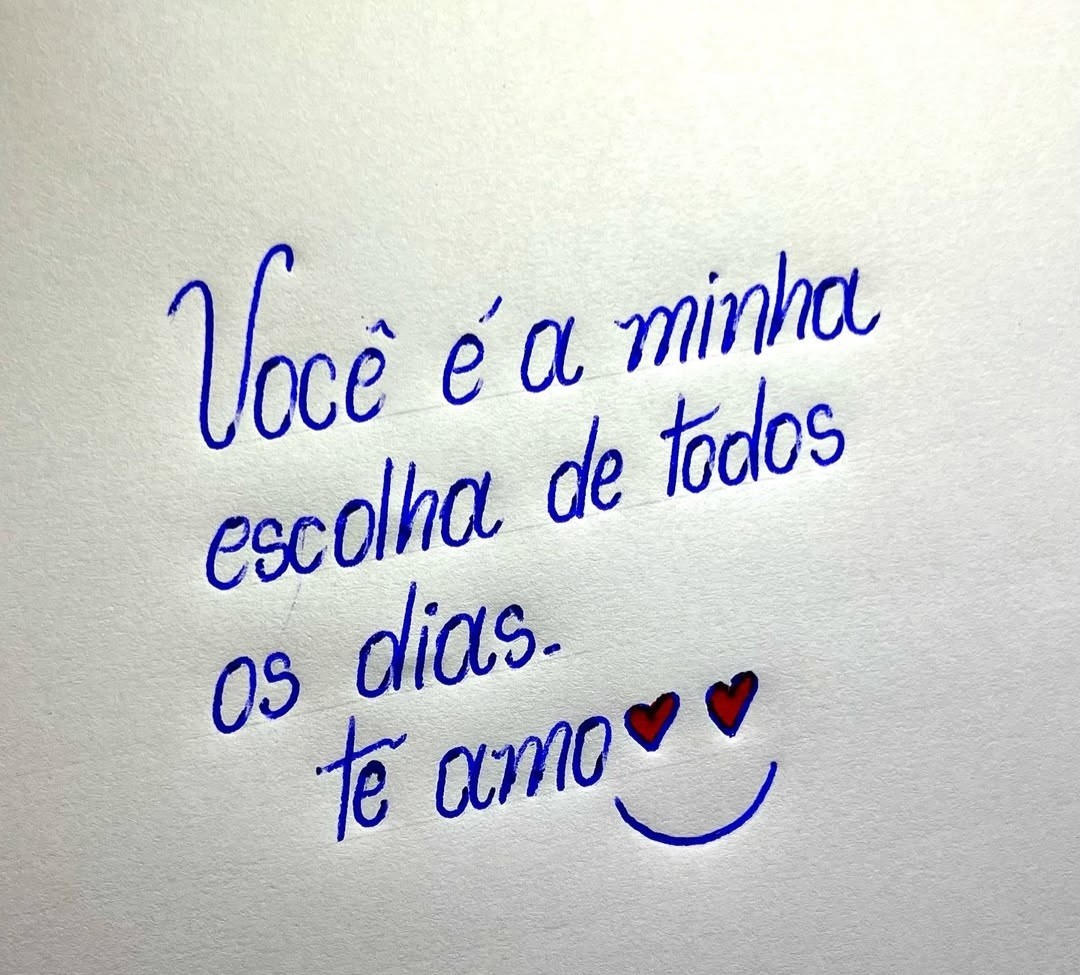 Você é a minha
escolha de todos
os dias.
te amo♥♥